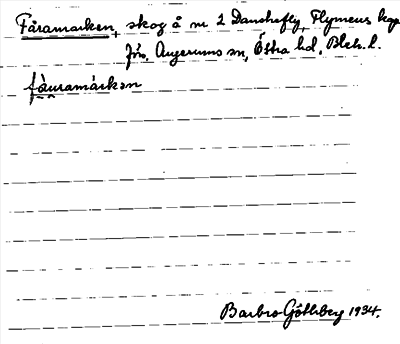 Fåramarken, skog å nr 2 Danshefly, Flymens kap
frs, Augerums sn, Östra hd, Blek. l.
fåuramàrkan
Barbro Göthberg 1934.